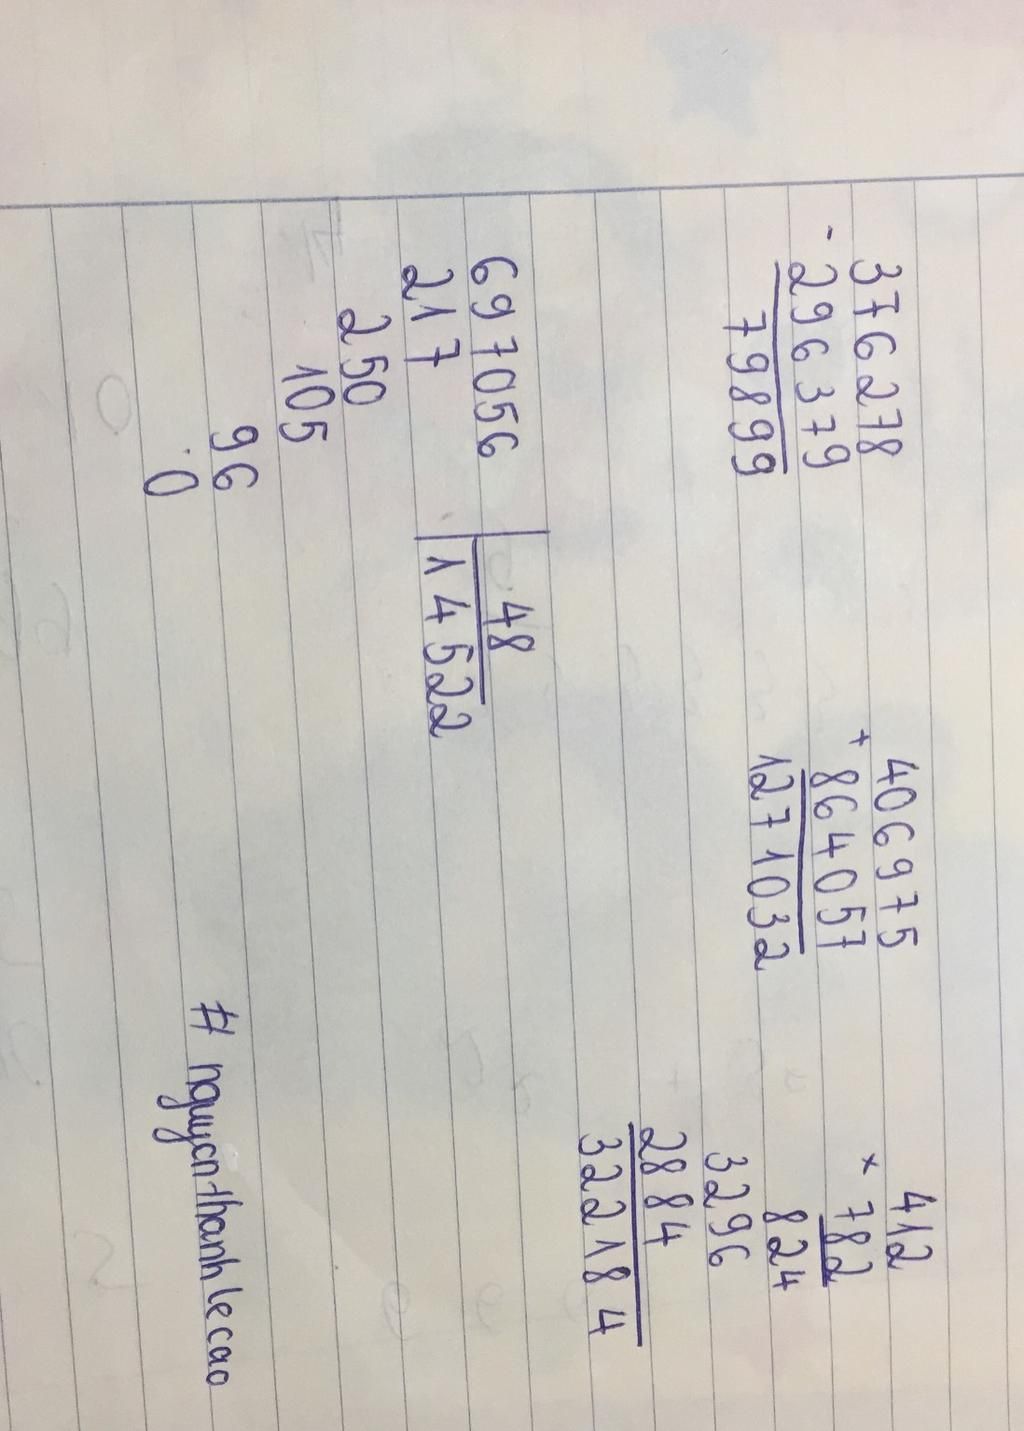 376278
- 296379
79899
406975
+ 864057
1271032
412
× 782
824
3296
2884
322184
697056 48
217 14522
250
105
96
0
# nguyenthanhlecao